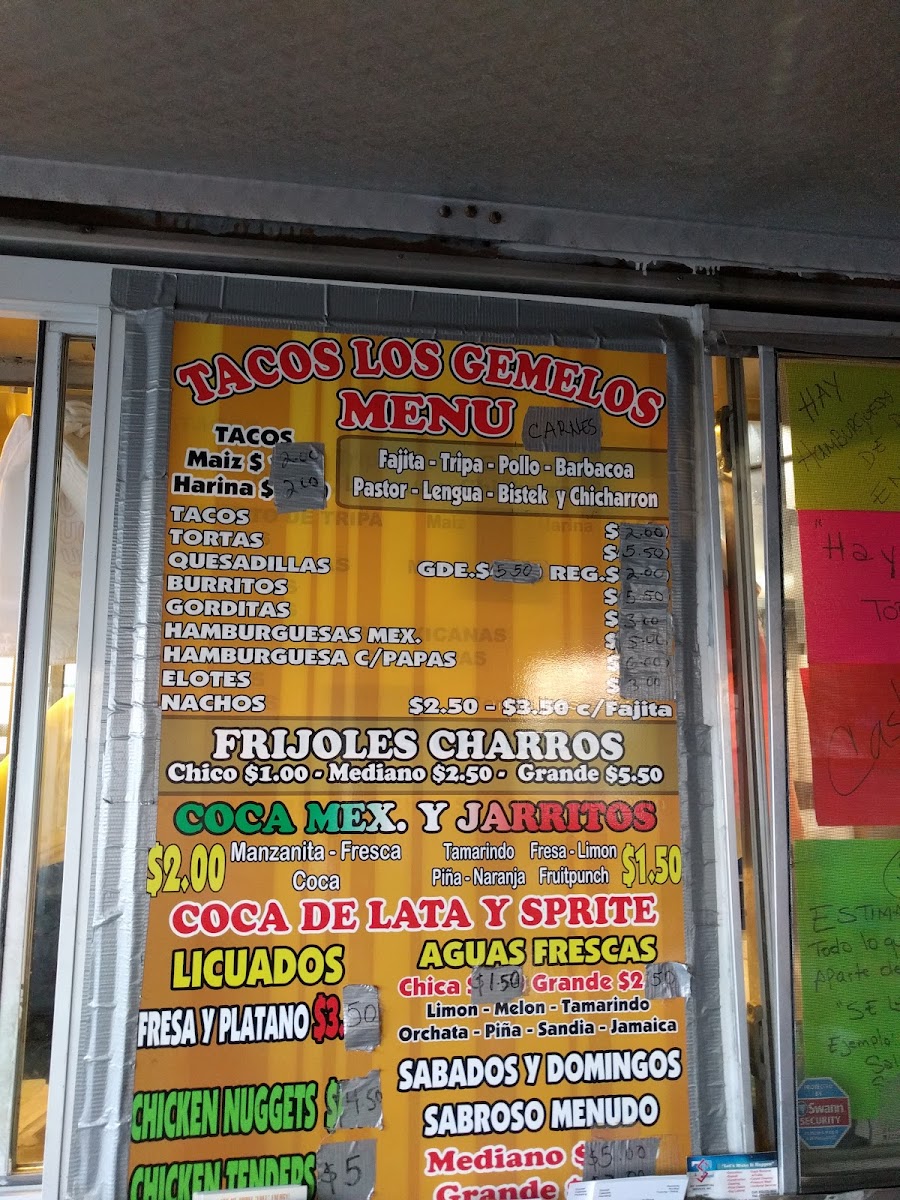 TACOS LOS GEMELOS
MENU
CARNES
TACOS
Maiz $ 2.00
Harina $ 2.00
Fajita - Tripa - Pollo - Barbacoa
Pastor - Lengua - Bistek y Chicharron
TACOS $ 2.00
TORTAS $ 5.50
QUESADILLAS GDE.$ 5.50 REG.$ 2.00
BURRITOS $ 5.50
GORDITAS $ 3.00
HAMBURGUESAS MEX. $ 5.00
HAMBURGUESA C/PAPAS $ 6.00
ELOTES $ 3.00
NACHOS $2.50 - $3.50 c/Fajita
FRIJOLES CHARROS
Chico $1.00 - Mediano $2.50 - Grande $5.50
COCA MEX. Y JARRITOS
$2.00 Manzanita - Fresca
Coca
Tamarindo Fresa - Limon $1.50
Piña - Naranja Fruitpunch
COCA DE LATA Y SPRITE
LICUADOS
FRESA Y PLATANO $3.50
AGUAS FRESCAS
Chica $1.50 Grande $2.50
Limon - Melon - Tamarindo
Orchata - Piña - Sandia - Jamaica
CHICKEN NUGGETS $4.50
CHICKEN TENDERS $5
SABADOS Y DOMINGOS
SABROSO MENUDO
Mediano $5.00
Grande $
HAY
HAMBURGUESAS
DE
"Hay
Cas
ESTIMA
Todo lo q
Aparte de
"SE
Ejemplo
Sal
Swann
SECURITY